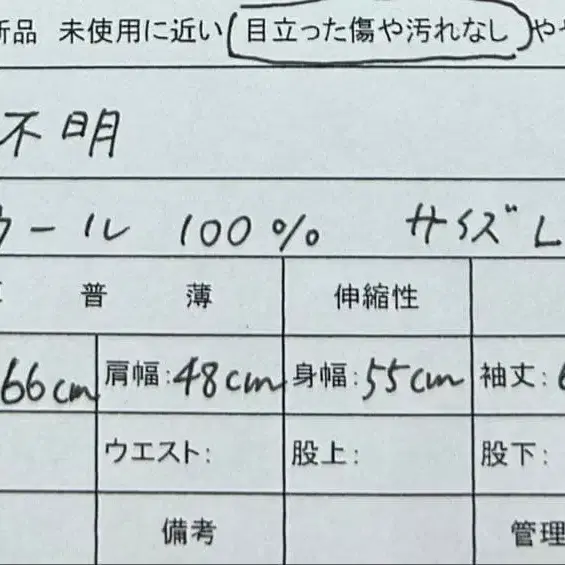 新品 未使用に近い 目立った傷や汚れなし や
不明
ウール 100% サイズ L
普 薄 伸縮性
66cm 肩幅:48cm 身幅:55cm 袖丈:
ウエスト: 股上: 股下:
備考 管理